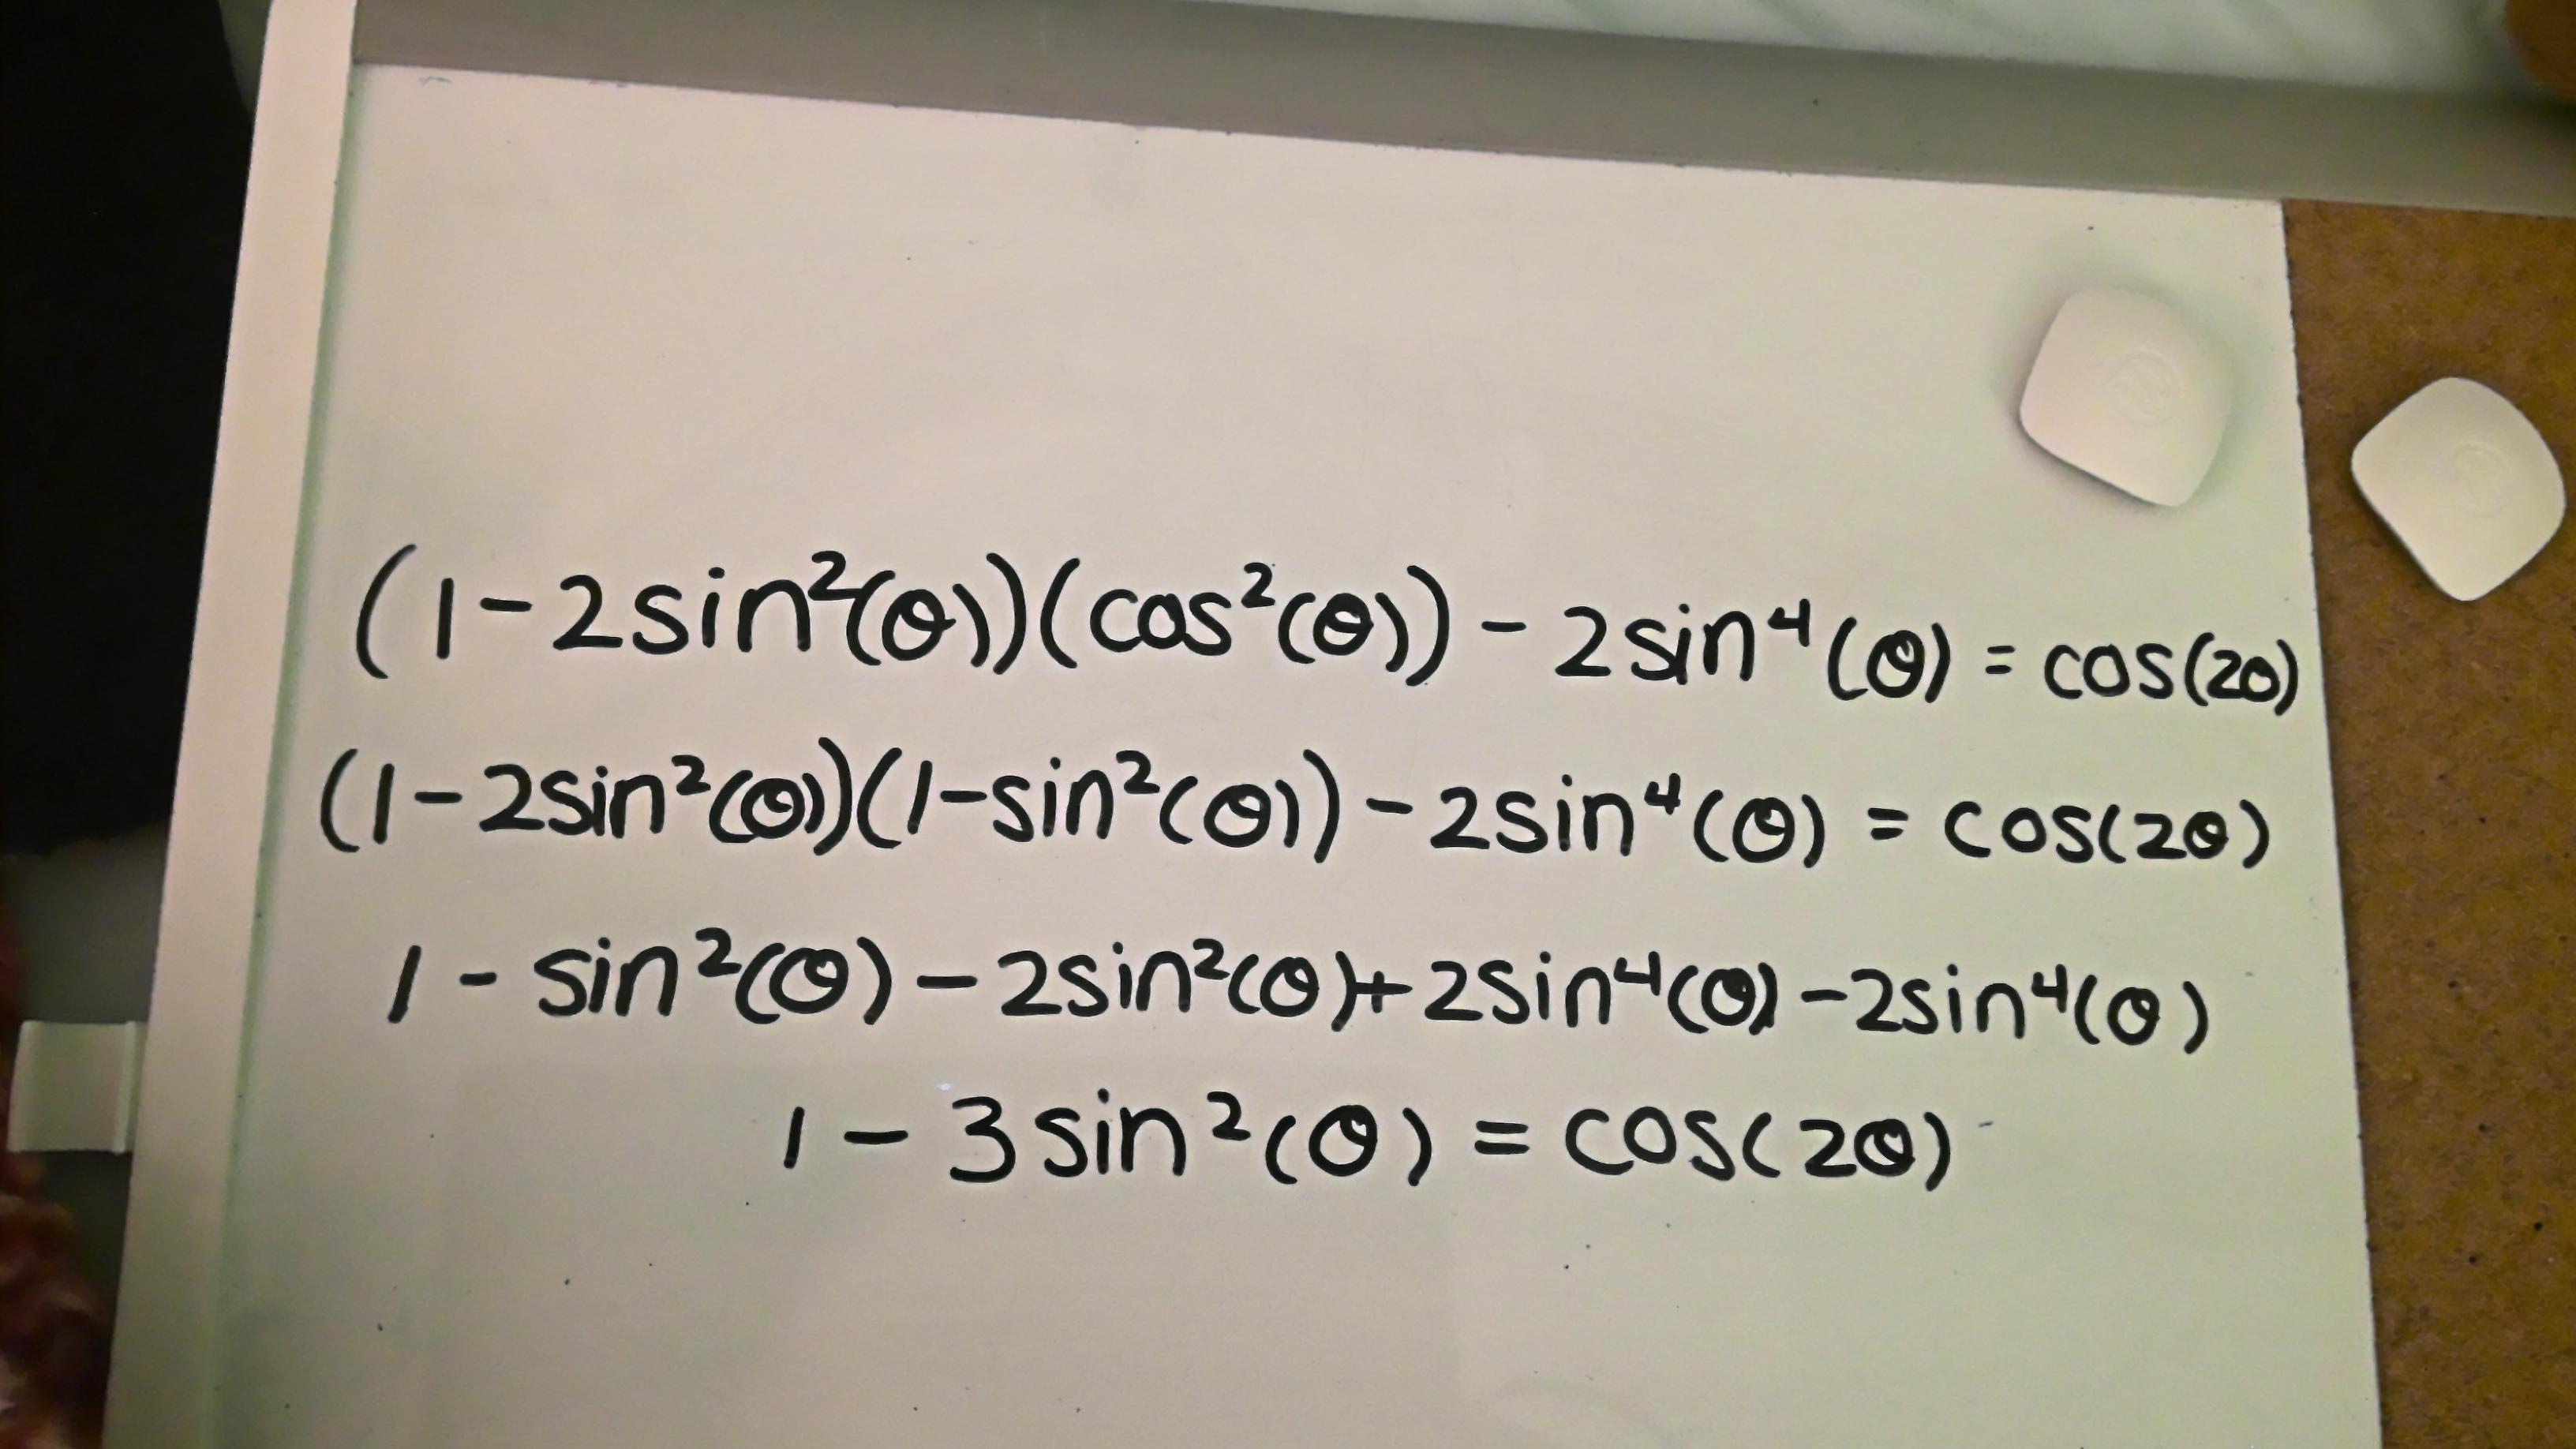 (1-2sin²(θ))(cos²(θ)) - 2sin⁴(θ) = cos(2θ)
(1-2sin²(θ))(1-sin²(θ)) - 2sin⁴(θ) = cos(2θ)
1 - sin²(θ) - 2sin²(θ) + 2sin⁴(θ) - 2sin⁴(θ)
1 - 3sin²(θ) = cos(2θ)